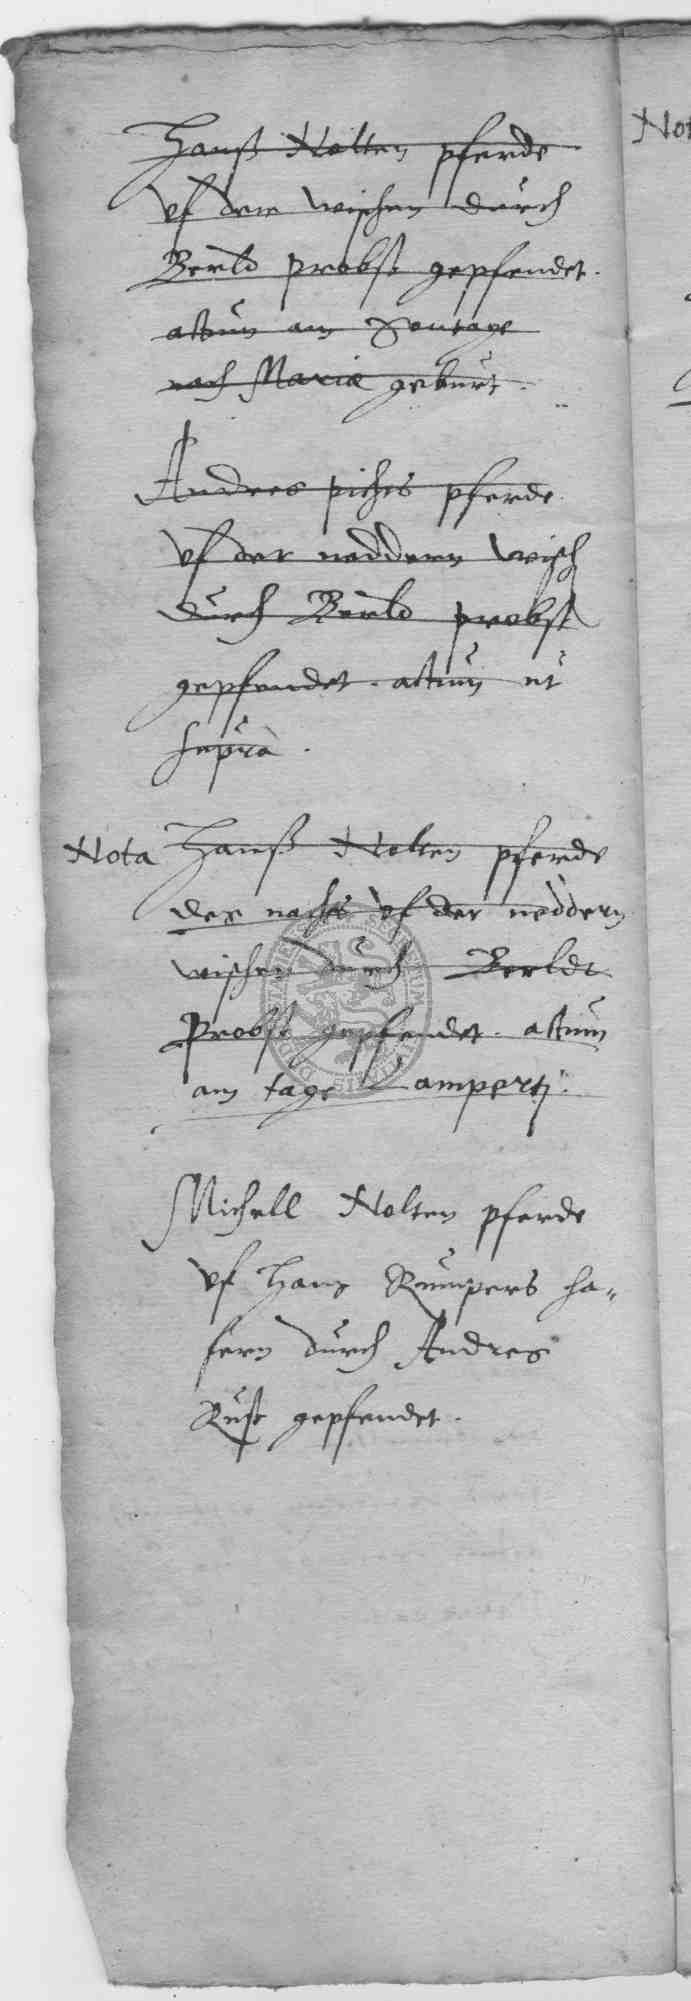 Hanß Nolten pferde
vf den wischen durch
Berld probst gepfendet.
actum am Sontage
nach Mariæ geburt.
Andres pichts pferde
vf der neddern wisch
durch Berld probst
gepfendet. actum ut
supra.
Nota Hanß Nolten pferde
des nachts vf der neddern
wischen durch Berldt
Probst gepfendet. actum
am tage Lamperti.
Michell Nolten pferde
vf Hans Rumpers ha-
fern durch Andres
Rust gepfendet.